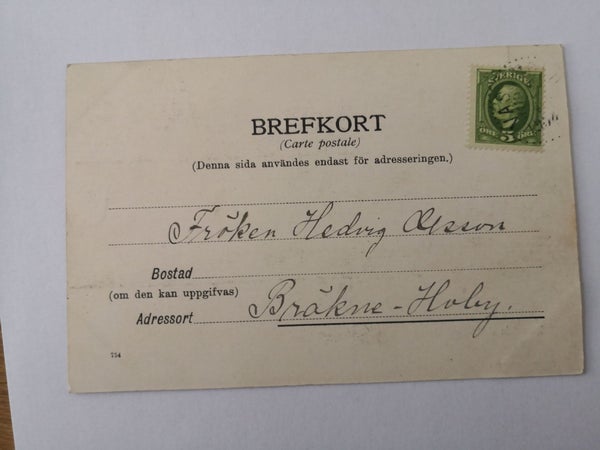 SVERIGE
ÖRE 5 ÖRE
BREFKORT
(Carte postale)
(Denna sida användes endast för adresseringen.)
Fröken Hedvig Olsson
Bostad
(om den kan uppgifvas)
Bräkne-Hoby.
Adressort
734